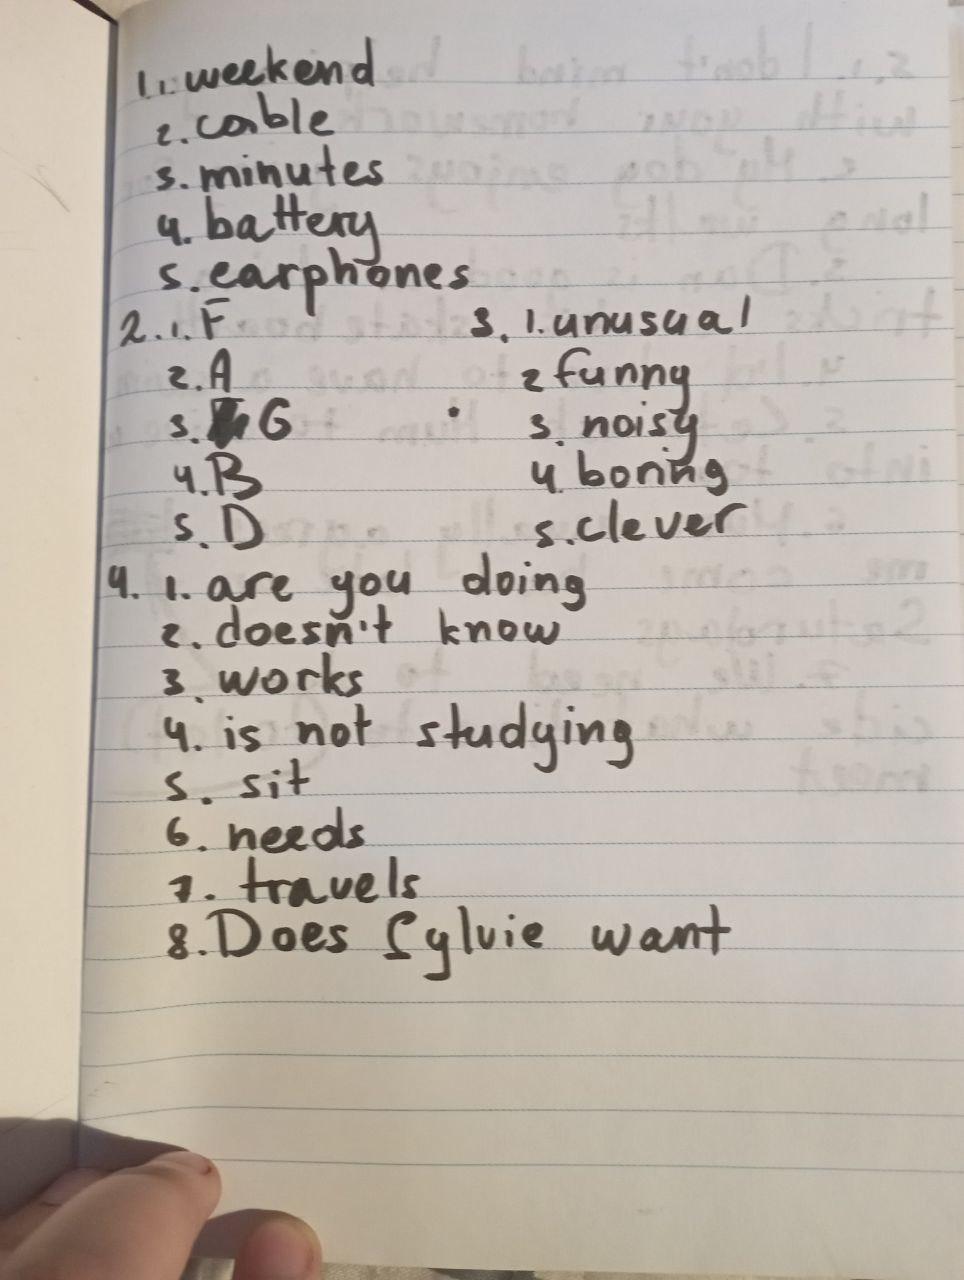 1. 1. weekend
2. cable
3. minutes
4. battery
5. earphones
2. 1. F
2. A
3. G
4. B
5. D
3. 1. unusual
2 funny
3. noisy
4. boring
5. clever
4. 1. are you doing
2. doesn't know
3. works
4. is not studying
5. sit
6. needs
7. travels
8. Does Sylvie want